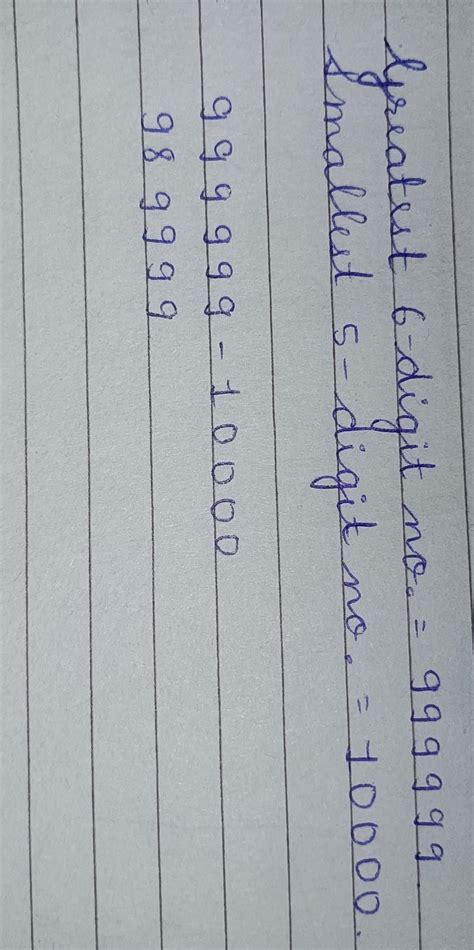 Greatest 6-digit no. = 999999
Smallest 5-digit no. = 10000.
999999 - 10000
989999